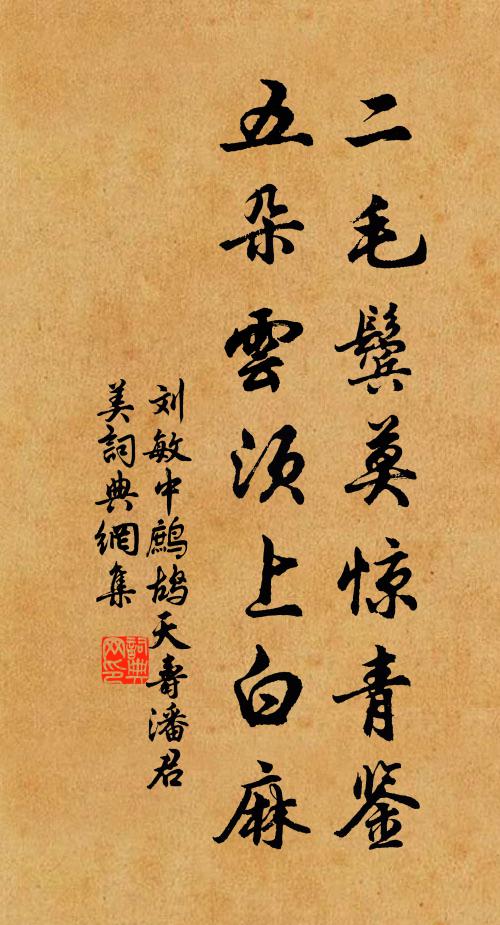 二毛鬓莫惊青鉴
五朵雲须上白麻
刘敏中鹧鸪天寿潘君
美詞典網集
詞典网印